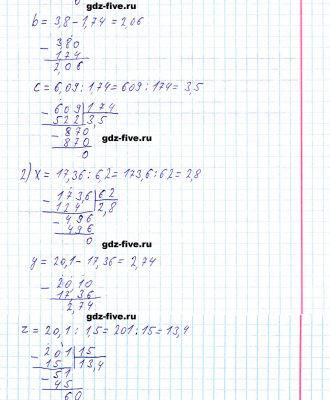 gdz-five.ru
b = 3,8 - 1,74 = 2,06
- 3,80
1,74
2,06
gdz-five.ru
c = 6,09 : 1,74 = 609 : 174 = 3,5
- 609 | 174
522 | 3,5
- 870
870
0
gdz-five.ru
2) x = 17,36 : 6,2 = 173,6 : 62 = 2,8
- 173,6 | 62
124 | 2,8
- 496
496
0
gdz-five.ru
y = 20,1 - 17,36 = 2,74
- 20,10
17,36
2,74
gdz-five.ru
z = 20,1 : 1,5 = 201 : 15 = 13,4
- 201 | 15
15 | 13,4
- 51
45
60
gdz-five.ru